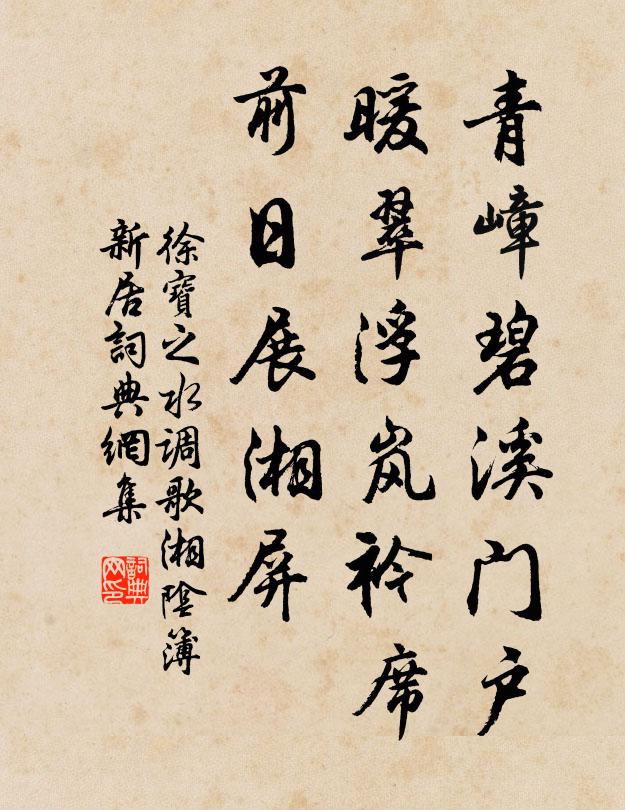 青嶂碧溪门户
暖翠浮岚衿席
前日展湘屏
徐寶之水调歌湘陰簿
新居詞典網集
詞典网印